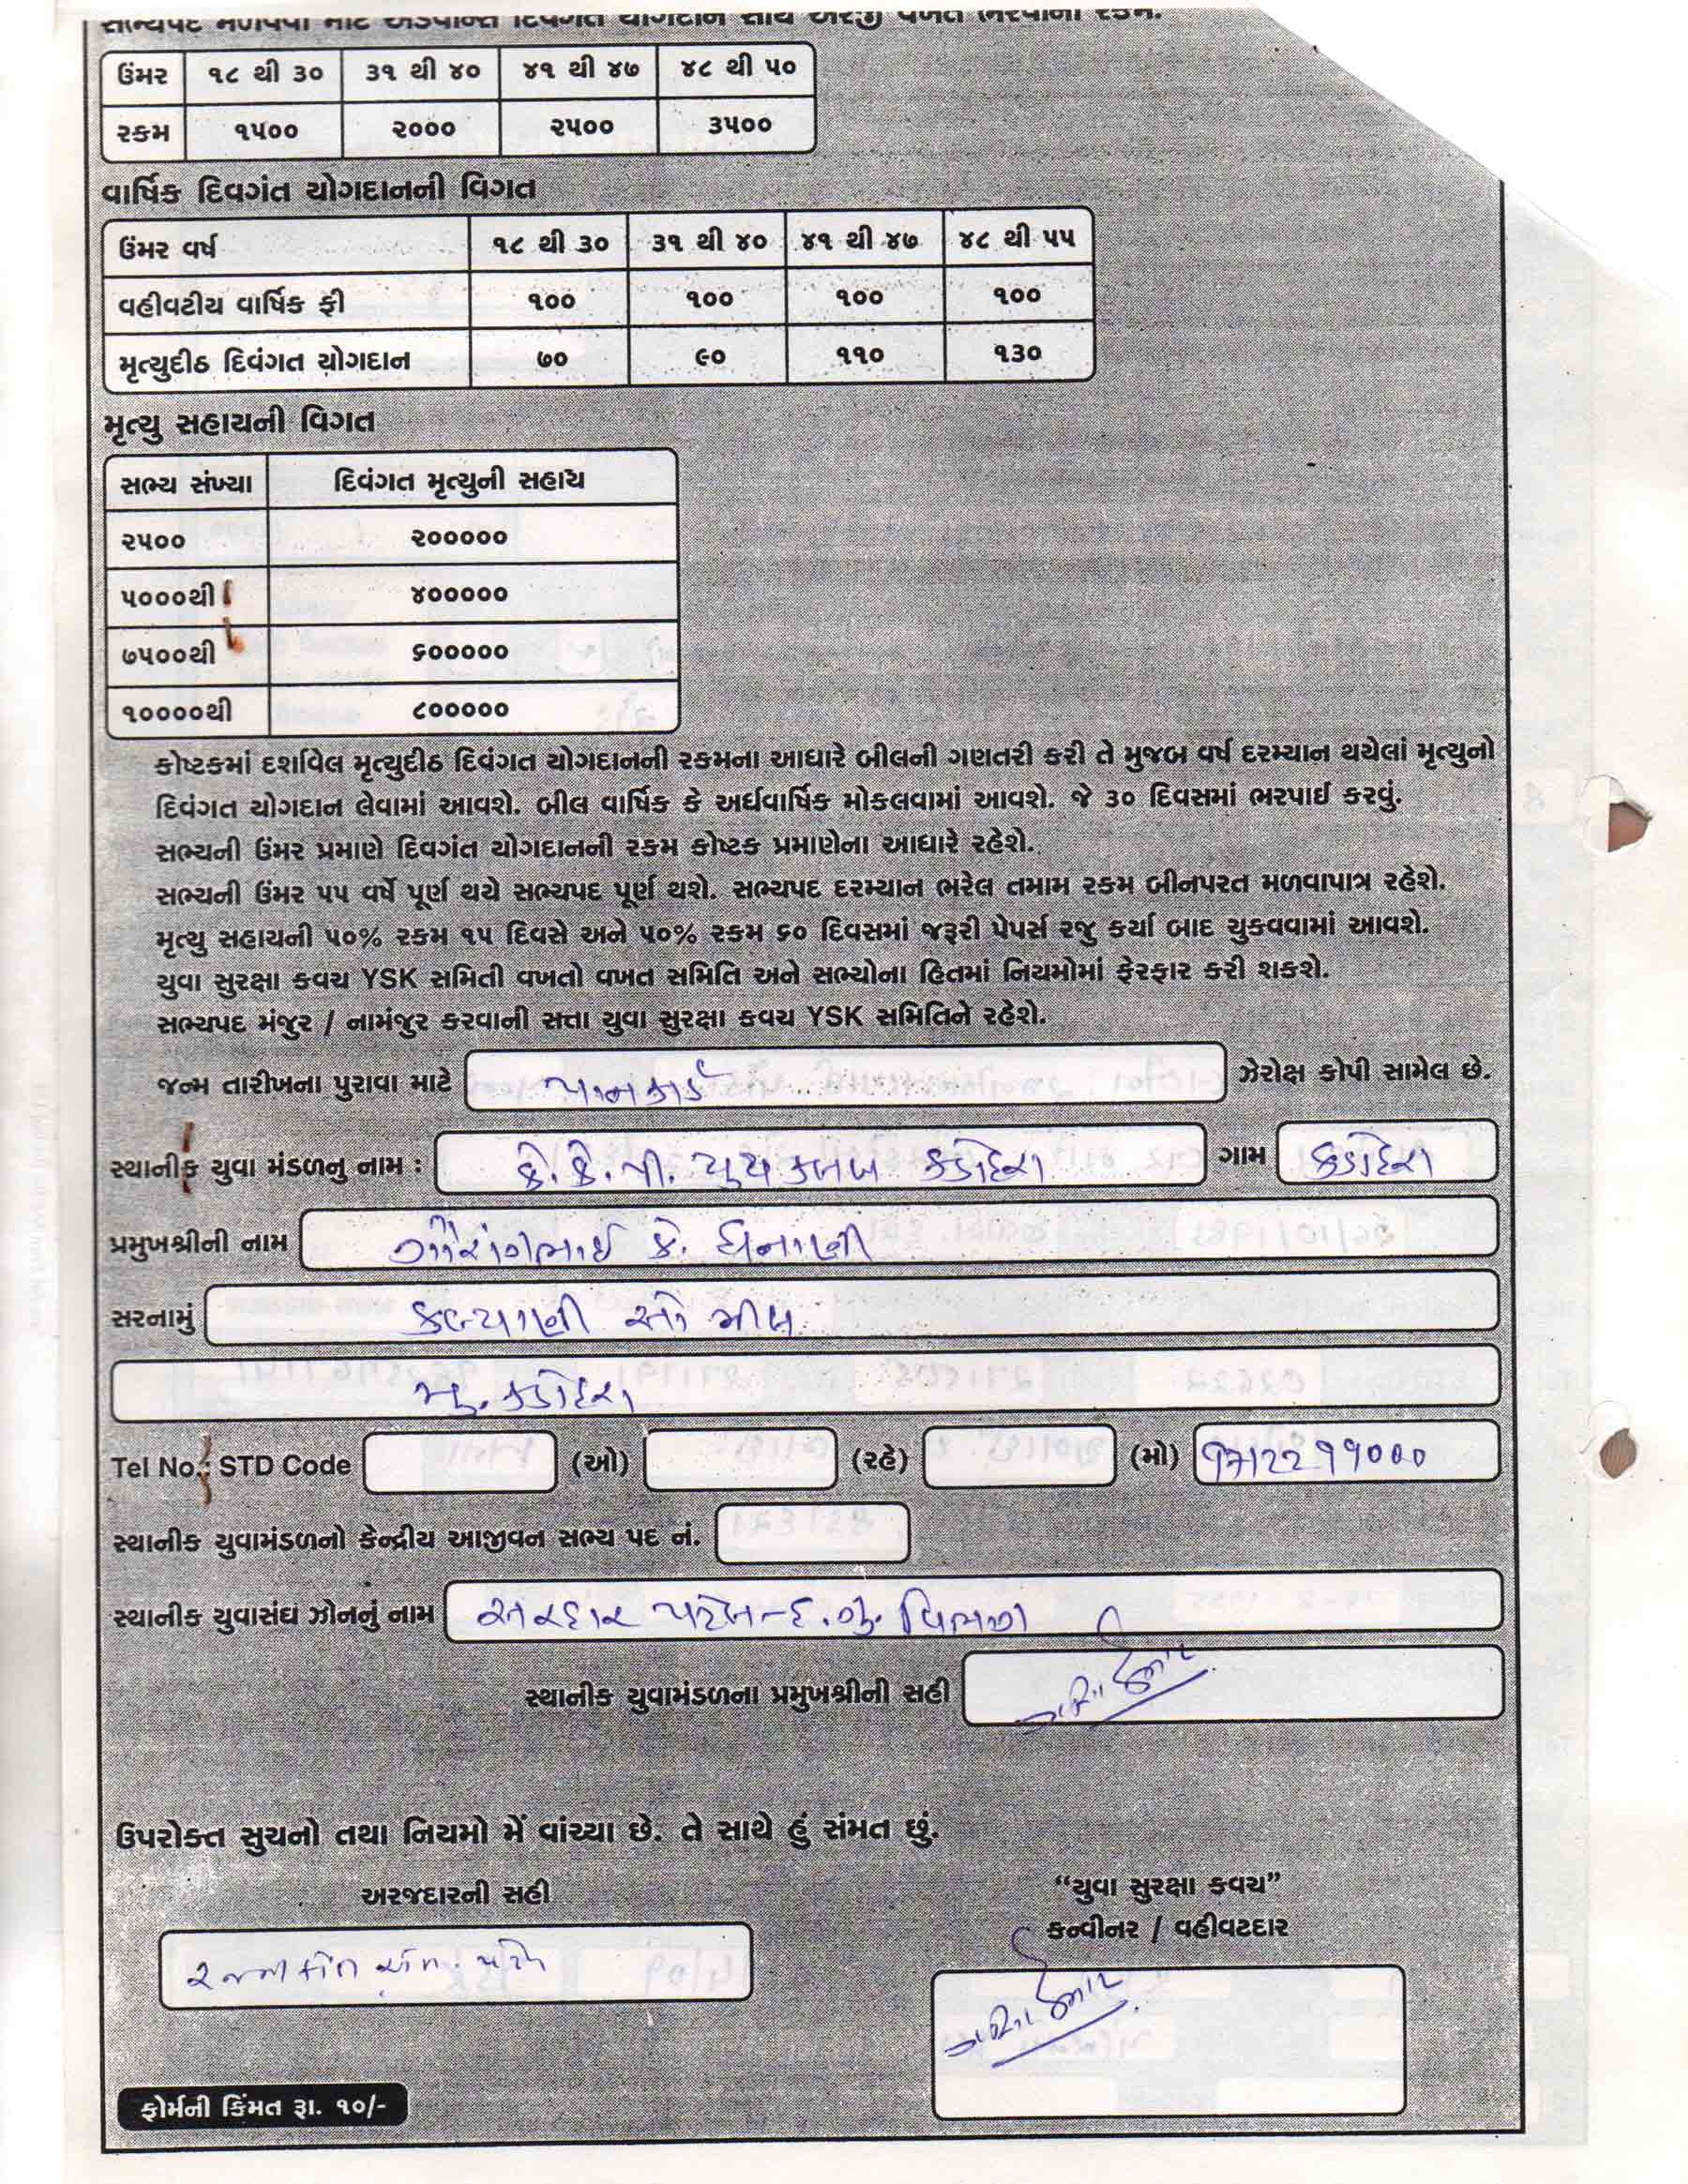 સભ્યપદ મેળવવા માટે એડવાન્સ દિવંગત યોગદાન સાથે અરજી વખતે ભરવાની રકમ.
ઉંમર ૧૮ થી ૩૦ ૩૧ થી ૪૦ ૪૧ થી ૪૭ ૪૮ થી ૫૦
રકમ ૧૫૦૦ ૨૦૦૦ ૨૫૦૦ ૩૫૦૦
વાર્ષિક દિવગંત યોગદાનની વિગત
ઉંમર વર્ષ ૧૮ થી ૩૦ ૩૧ થી ૪૦ ૪૧ થી ૪૭ ૪૮ થી ૫૫
વહીવટીય વાર્ષિક ફી ૧૦૦ ૧૦૦ ૧૦૦ ૧૦૦
મૃત્યુદીઠ દિવંગત યોગદાન ૭૦ ૯૦ ૧૧૦ ૧૩૦
મૃત્યુ સહાયની વિગત
સભ્ય સંખ્યા દિવંગત મૃત્યુની સહાય
૨૫૦૦ ૨૦૦૦૦૦
૫૦૦૦થી ૪૦૦૦૦૦
૭૫૦૦થી ૬૦૦૦૦૦
૧૦૦૦૦થી ૮૦૦૦૦૦
કોષ્ટકમાં દર્શાવેલ મૃત્યુદીઠ દિવંગત યોગદાનની રકમના આધારે બીલની ગણતરી કરી તે મુજબ વર્ષ દરમ્યાન થયેલાં મૃત્યુનો
દિવંગત યોગદાન લેવામાં આવશે. બીલ વાર્ષિક કે અર્ધવાર્ષિક મોકલવામાં આવશે. જે ૩૦ દિવસમાં ભરપાઈ કરવું.
સભ્યની ઉંમર પ્રમાણે દિવગંત યોગદાનની રકમ કોષ્ટક પ્રમાણેના આધારે રહેશે.
સભ્યની ઉંમર ૫૫ વર્ષે પૂર્ણ થયે સભ્યપદ પૂર્ણ થશે. સભ્યપદ દરમ્યાન ભરેલ તમામ રકમ બીનપરત મળવાપાત્ર રહેશે.
મૃત્યુ સહાયની ૫૦% રકમ ૧૫ દિવસે અને ૫૦% રકમ ૬૦ દિવસમાં જરૂરી પેપર્સ રજુ કર્યા બાદ ચુકવવામાં આવશે.
યુવા સુરક્ષા કવચ YSK સમિતી વખતો વખત સમિતિ અને સભ્યોના હિતમાં નિયમોમાં ફેરફાર કરી શકશે.
સભ્યપદ મંજુર / નામંજુર કરવાની સત્તા યુવા સુરક્ષા કવચ YSK સમિતિને રહેશે.
જન્મ તારીખના પુરાવા માટે પાનકાર્ડ ઝેરોક્ષ કોપી સામેલ છે.
સ્થાનીક યુવા મંડળનુ નામ : કે.કે.પી. યુથ કલબ કડોદરા ગામ કડોદરા
પ્રમુખશ્રીની નામ ગૌરાંગભાઈ કે. ધનાણી
સરનામું કલ્યાણી સો મીલ
મુ. કડોદરા
Tel No.: STD Code (ઓ) (રહે) (મો) 9712299000
સ્થાનીક યુવામંડળનો કેન્દ્રીય આજીવન સભ્ય પદ નં.
સ્થાનીક યુવાસંઘ ઝોનનું નામ સરદાર પટેલ-દ.ગુ. વિભાગ
સ્થાનીક યુવામંડળના પ્રમુખશ્રીની સહી
ઉપરોક્ત સુચનો તથા નિયમો મેં વાંચ્યા છે. તે સાથે હું સંમત છું.
અરજદારની સહી
"યુવા સુરક્ષા કવચ"
કન્વીનર / વહીવટદાર
ફોર્મની કિંમત રૂા. ૧૦/-